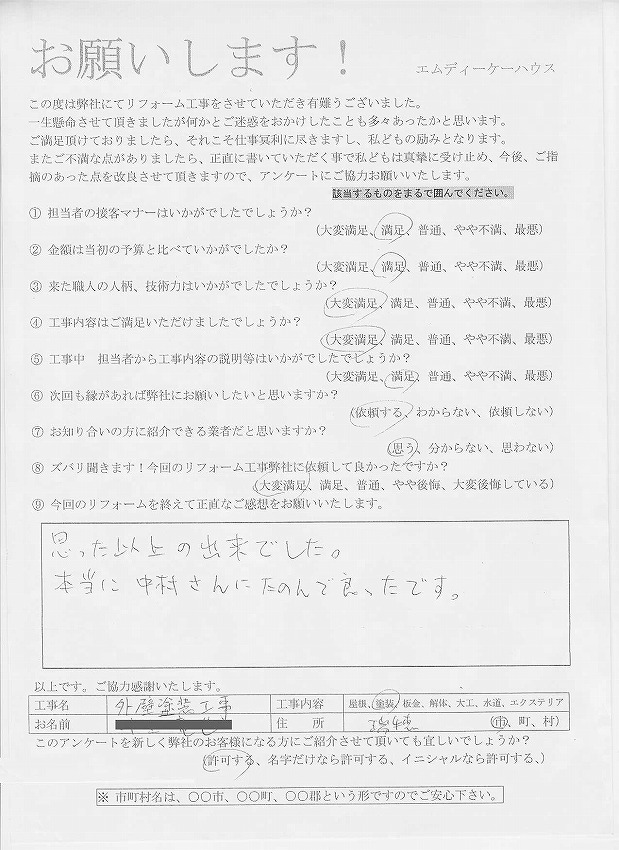 お願いします！
エムディーケーハウス
この度は弊社にてリフォーム工事をさせていただき有難うございました。
一生懸命させて頂きましたが何かとご迷惑をおかけしたことも多々あったかと思います。
ご満足頂けておりましたら、それこそ仕事冥利に尽きますし、私どもの励みとなります。
またご不満な点がありましたら、正直に書いていただく事で私どもは真摯に受け止め、今後、ご指
摘のあった点を改良させて頂きますので、アンケートにご協力お願いいたします。
該当するものをまるで囲んでください。
① 担当者の接客マナーはいかがでしたでしょうか？
（大変満足、満足、普通、やや不満、最悪）
② 金額は当初の予算と比べていかがでしたか？
（大変満足、満足、普通、やや不満、最悪）
③ 来た職人の人柄、技術力はいかがでしたでしょうか？
（大変満足、満足、普通、やや不満、最悪）
④ 工事内容はご満足いただけましたでしょうか？
（大変満足、満足、普通、やや不満、最悪）
⑤ 工事中　担当者から工事内容の説明等はいかがでしたでしょうか？
（大変満足、満足、普通、やや不満、最悪）
⑥ 次回も縁があれば弊社にお願いしたいと思いますか？
（依頼する、わからない、依頼しない）
⑦ お知り合いの方に紹介できる業者だと思いますか？
（思う、分からない、思わない）
⑧ ズバリ聞きます！今回のリフォーム工事弊社に依頼して良かったですか？
（大変満足、満足、普通、やや後悔、大変後悔している）
⑨ 今回のリフォームを終えて正直なご感想をお願いいたします。
思った以上の出来でした。
本当に中村さんにたのんで良ったです。
以上です。ご協力感謝いたします。
工事名 外壁塗装工事 工事内容 屋根、塗装、板金、解体、大工、水道、エクステリア
お名前 住　所 瑞穂 （市、町、村）
このアンケートを新しく弊社のお客様になる方にご紹介させて頂いても宜しいでしょうか？
（許可する、名字だけなら許可する、イニシャルなら許可する、）
※ 市町村名は、〇〇市、〇〇町、〇〇郡という形ですのでご安心下さい。